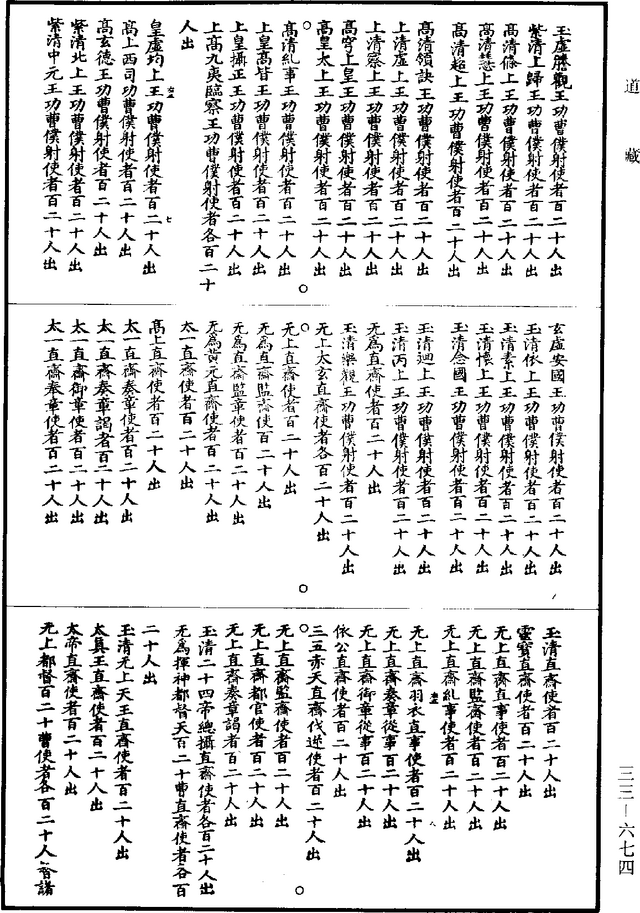 道藏
玉虛勝觀王功曹僕射使者百二十人出
紫清上歸王功曹僕射使者百二十人出
高清條上王功曹僕射使者百二十人出
高清慧上王功曹僕射使者百二十人出
高清超上王功曹僕射使者百二十人出
高清領訣王功曹僕射使者百二十人出
上清虛上王功曹僕射使者百二十人出
上清察上王功曹僕射使者百二十人出
高穹上皇王功曹僕射使者百二十人出
高皇太上王功曹僕射使者百二十人出
高清糺事王功曹僕射使者百二十人出
上皇高皆王功曹僕射使者百二十人出
上皇攝正王功曹僕射使者百二十人出
上高九夷臨察王功曹僕射使者各百二十
人出
皇虛均上王功曹僕射使者百二十人出
高上西司功曹僕射使者百二十人出
高玄德王功曹僕射使者百二十人出
紫清北上王功曹僕射使者百二十人出
紫清中元王功曹僕射使者百二十人出
玄虛安國王功曹僕射使者百二十人出
玉清依上王功曹僕射使者百二十人出
玉清素上王功曹僕射使者百二十人出
玉清懷上王功曹僕射使者百二十人出
玉清念國王功曹僕射使者百二十人出
玉清迴上王功曹僕射使者百二十人出
玉清丙上王功曹僕射使者百二十人出
无爲直齋使者百二十人出
玉清樂觀王功曹僕射使者百二十人出
无上太玄直齋使者各百二十人出
无上直齋使者百二十人出
无爲直齋監齋使百二十人出
无爲直齋監章使者百二十人出
无爲黄元直齋使者百二十人出
太一直齋使者百二十人出
高上直齋使者百二十人出
太一直齋奏章使者百二十人出
太一直齋奏章謁者百二十人出
太一直齋御章使者百二十人出
太一直齋奉章使者百二十人出
玉清直齋使者百二十人出
靈寶直齋使者百二十人出
无上直齋直事使者百二十人出
无上直齋監齋使者百二十人出
无上直齋糺事使者百二十人出
无上直齋羽衣直事使者百二十人出
无上直齋奏章從事百二十人出
无上直齋御章從事百二十人出
依公直齋使者百二十人出
三五赤天直齋伐逆使者百二十人出
无上直齋監齋使者百二十人出
无上直齋都官使者百二十人出
无上直齋奏章謁者百二十人出
玉清二十四帝總攝直齋使者各百二十人出
无爲揮神都督天百二十曹直齋使者各百
二十人出
玉清无上天王直齋使者百二十人出
太真王直齋使者百二十人出
太帝直齋使者百二十人出
无上都督百二十曹使者各百二十人皆諸
三三—六七四